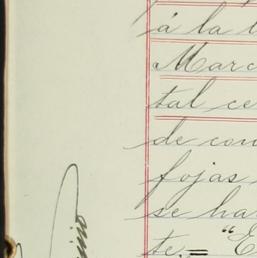 á la
Marc
tal ce
de con
fojas
se ha
te.= "E